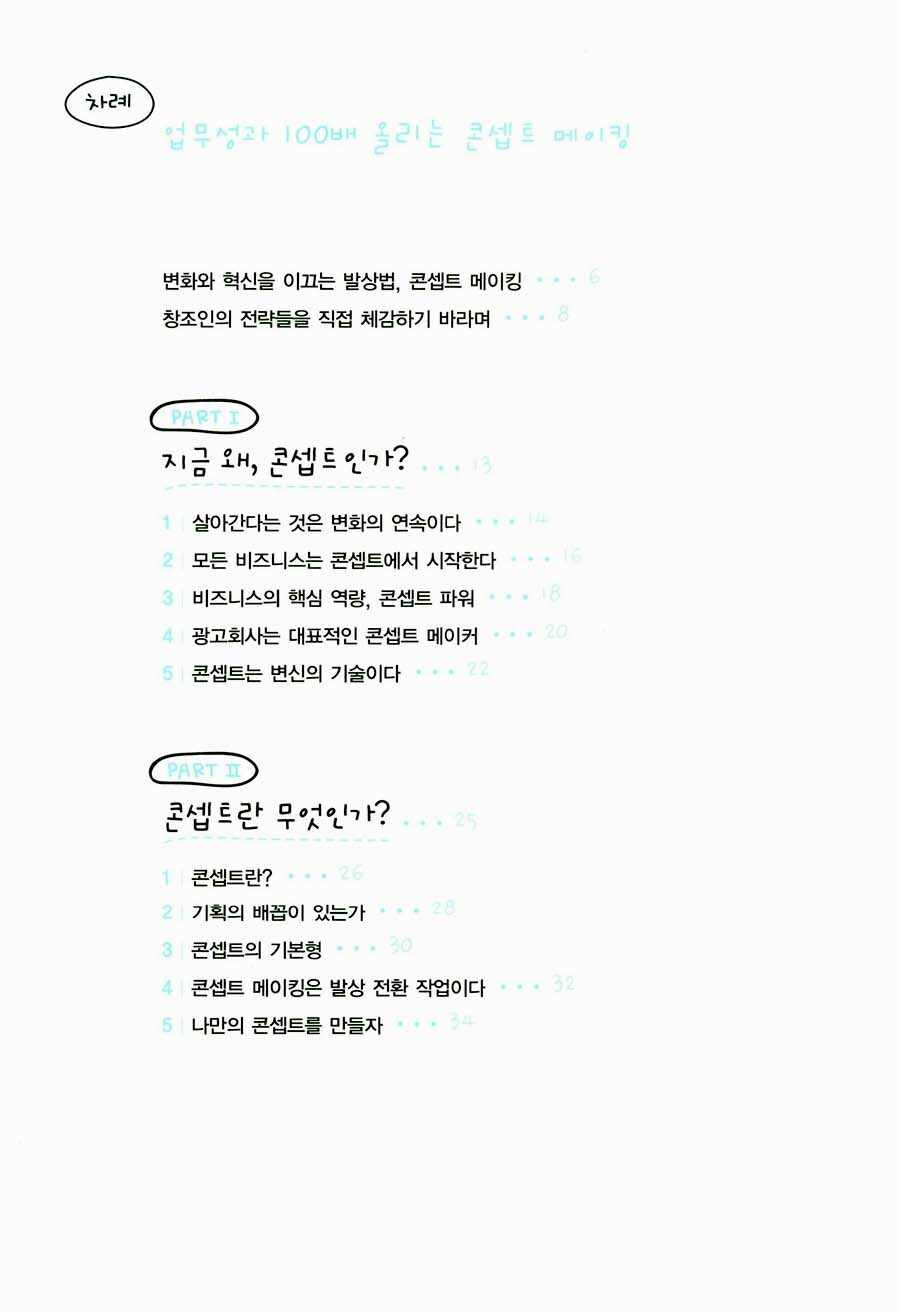 차례
업무성과 100배 올리는 콘셉트 메이킹
변화와 혁신을 이끄는 발상법, 콘셉트 메이킹 • • • 6
창조인의 전략들을 직접 체감하기 바라며 • • • 8
PART I
지금 왜, 콘셉트인가? • • • 13
1 | 살아간다는 것은 변화의 연속이다 • • • 14
2 | 모든 비즈니스는 콘셉트에서 시작한다 • • • 16
3 | 비즈니스의 핵심 역량, 콘셉트 파워 • • • 18
4 | 광고회사는 대표적인 콘셉트 메이커 • • • 20
5 | 콘셉트는 변신의 기술이다 • • • 22
PART II
콘셉트란 무엇인가? • • • 25
1 | 콘셉트란? • • • 26
2 | 기획의 배꼽이 있는가 • • • 28
3 | 콘셉트의 기본형 • • • 30
4 | 콘셉트 메이킹은 발상 전환 작업이다 • • • 32
5 | 나만의 콘셉트를 만들자 • • • 34